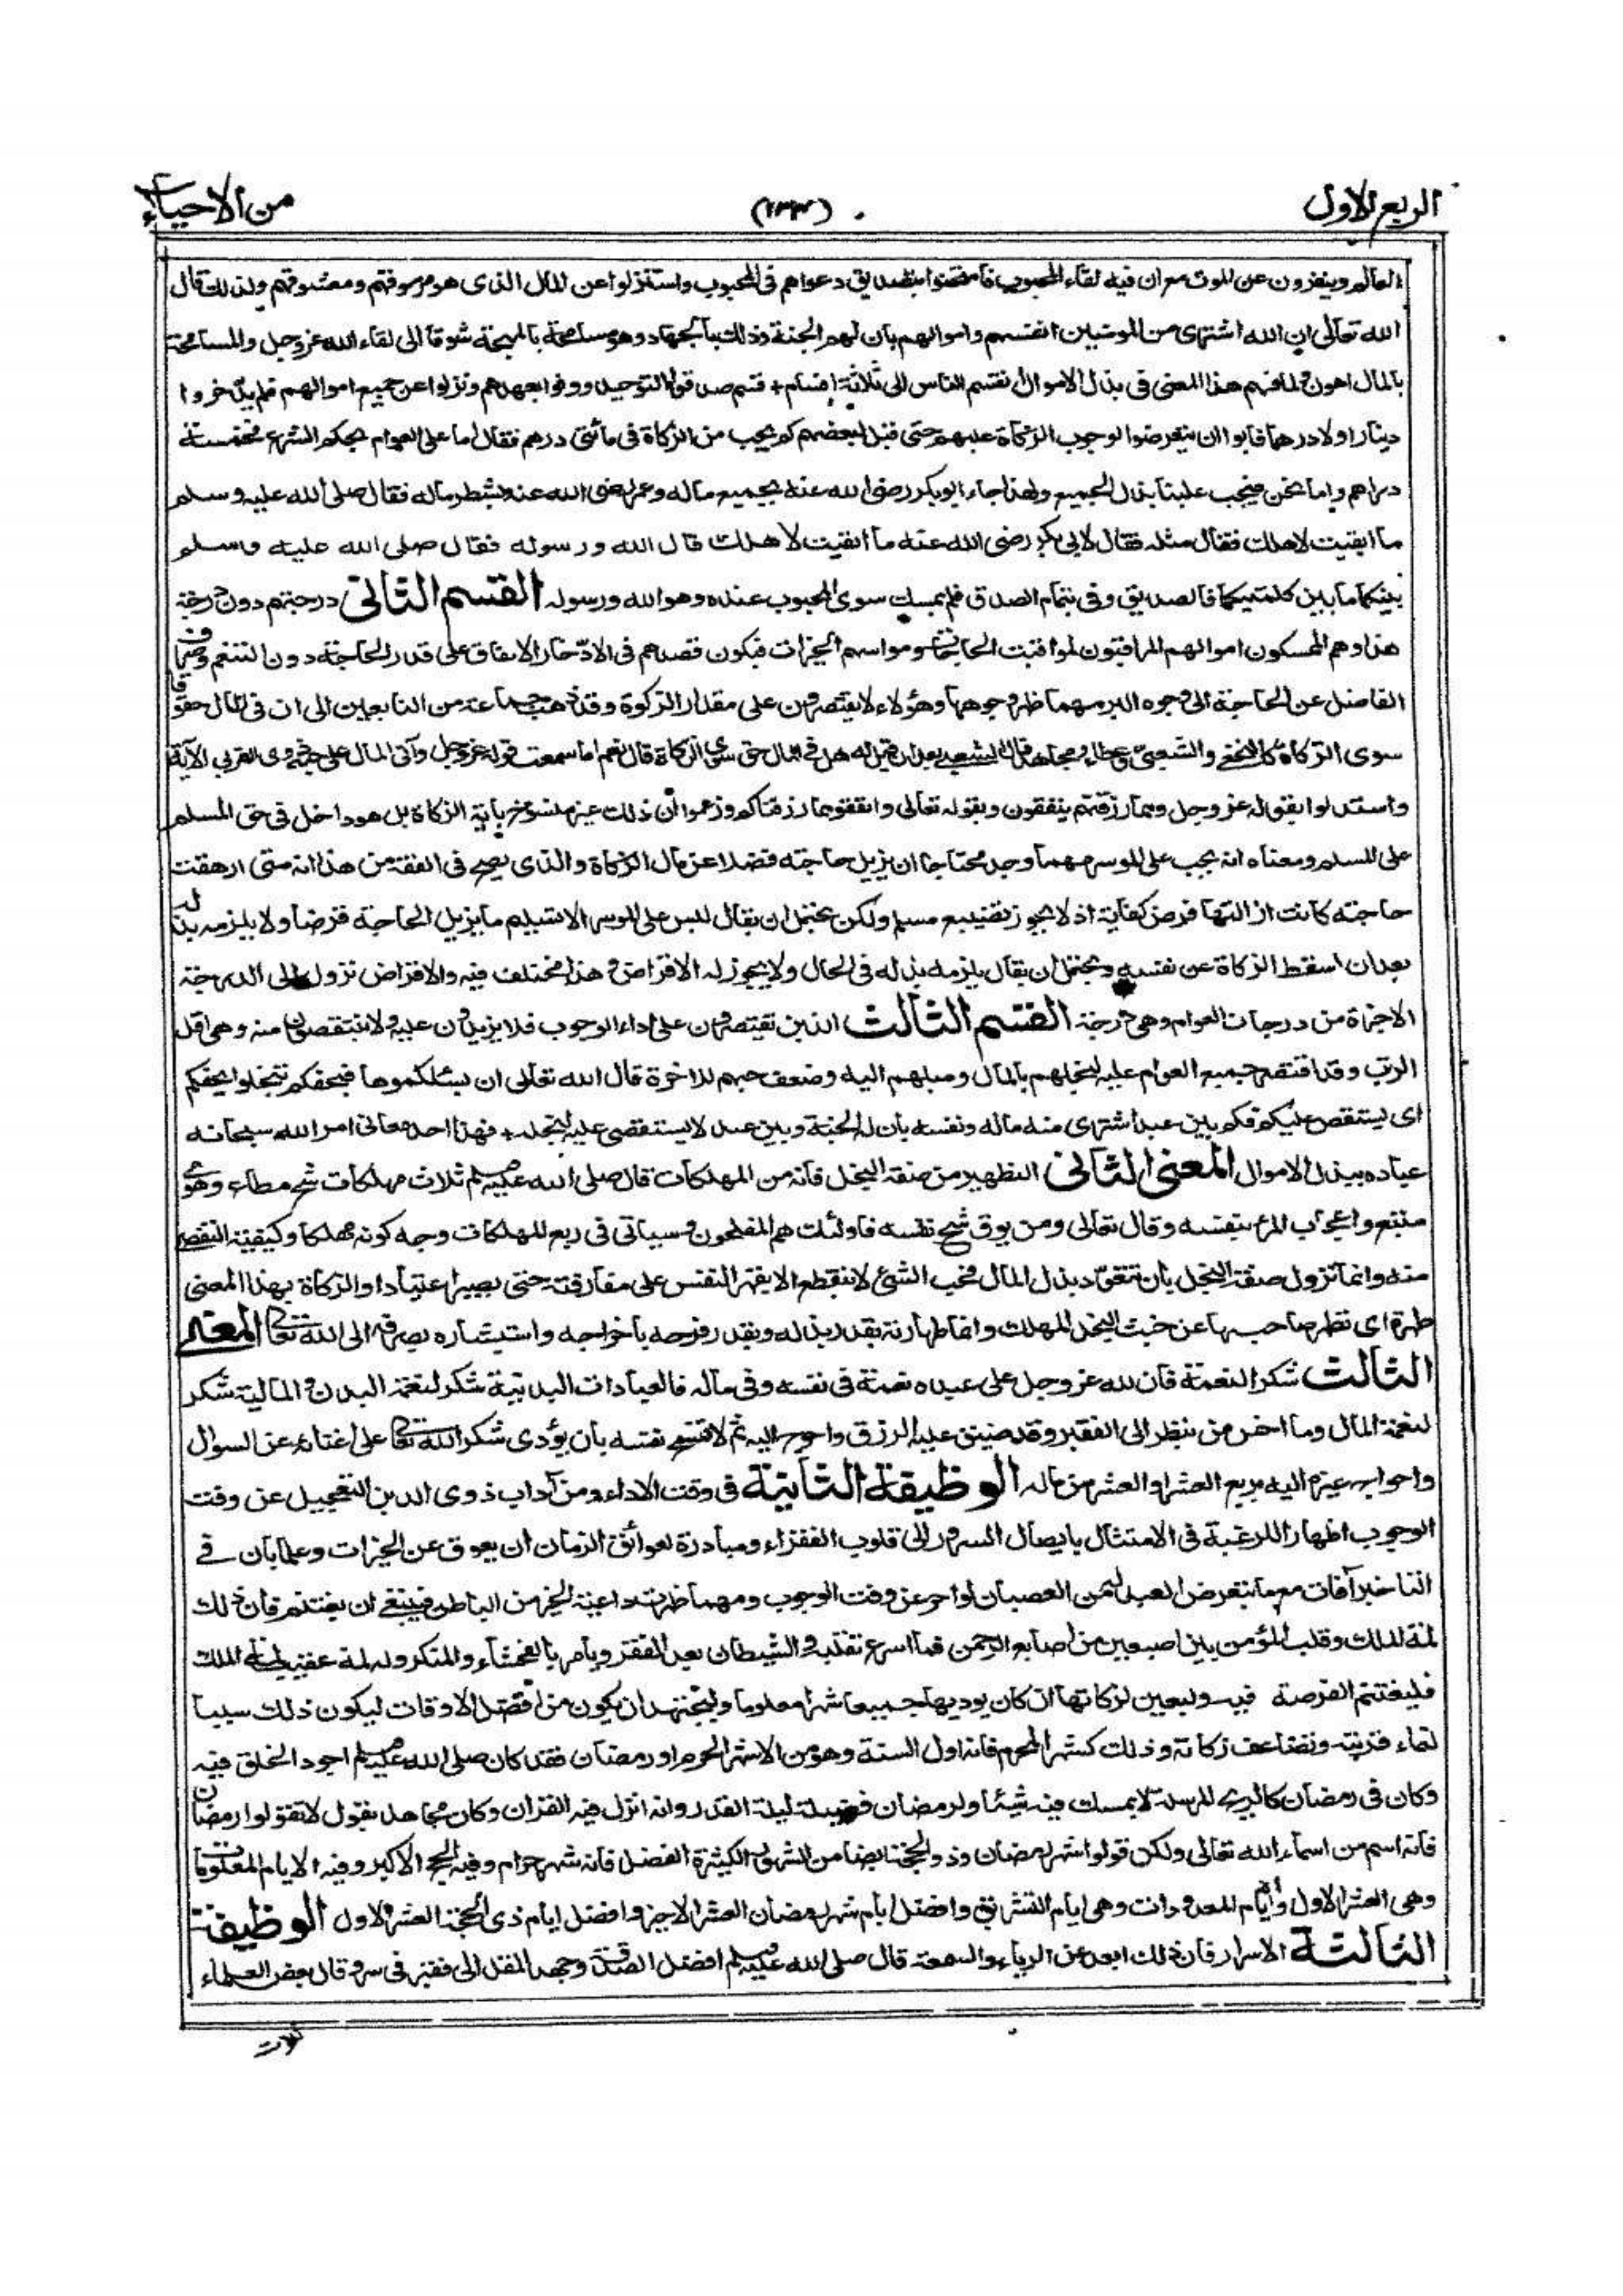 الربع الاول
(١٣٣)
من الاحياء
العالم وينفرون عن الموت مع ان فيه لقاء المحبوب فامتحنوا بتصديق دعواهم فى المحبوب واستنزلوا عن المال الذى هو مرموقهم ومعشوقهم ولذلك قال
الله تعالى ان الله اشترى من المومنين انفسهم واموالهم بان لهم الجنة وذلك بالجهاد وهو مسامحة بالمهجة شوقا الى لقاء الله عز وجل والمسامحة
بالمال اهون ولما فهم هذا المعنى فى بذل الاموال انقسم الناس الى ثلاثة اقسام + قسم صدقوا التوحيد ووفوا بعهدهم ونزلوا عن جميع اموالهم فلم يدّخروا
دينارا ولا درهما فابوا ان يتعرضوا لوجوب الزكاة عليهم حتى قيل لبعضهم كم يجب من الزكاة فى مأتى درهم فقال اما على العوام بحكم الشرع فخمسة
دراهم واما نحن فيجب علينا بذل الجميع ولهذا جاء ابوبكر رضى الله عنه بجميع ماله وعمر رضى الله عنه بشطر ماله فقال صلى الله عليه وسلم
ما ابقيت لاهلك فقال مثله فقال لابى بكر رضى الله عنه ما ابقيت لاهلك قال الله ورسوله فقال صلى الله عليه وسلم
بينكما ما بين كلمتيكما فالصديق وفى بتمام الصدق فلم يمسك سوى المحبوب عنده وهو الله ورسوله القسم الثانى درجتهم دون درجة
هذا وهم الممسكون اموالهم المراقبون لمواقيت الحاجات ومواسم الخيرات فيكون قصدهم فى الادّخار الانفاق على قدر الحاجة دون التنعم وصرف
الفاضل عن الحاجة الى وجوه البر مهما ظهر وجوهها وهؤلاء لا يقتصرون على مقدار الزكوة وقد ذهب جماعة من التابعين الى ان فى المال حقوقا
سوى الزكاة كالنخعى والشعبى وعطاء ومجاهد قال الشعبى بعد ان قيل له هل فى المال حق سوى الزكاة قال نعم اما سمعت قوله عز وجل وآتى المال على حبه ذوى القربى الآية
واستدلوا بقوله عز وجل ومما رزقنهم ينفقون وبقوله تعالى وانفقوا مما رزقناكم وزعموا ان ذلك غير منسوخ باٰية الزكاة بل هو داخل فى حق المسلم
على المسلم ومعناه انه يجب على الموسر مهما وجد محتاجا ان يزيل حاجته فضلا عن مال الزكاة والذى يصح فى الفقه من هذا انه متى ارهقت
حاجته كانت ازالتها فرض كفاية اذ لا يجوز تضييع مسلم ولكن يحتمل ان يقال ليس على الموسر الا تسليم ما يزيل الحاجة قرضا ولا يلزمه بذله
بعد ان اسقط الزكاة عن نفسه ويحتمل ان يقال يلزمه بذله فى الحال ولا يجوز له الاقراض وهذا مختلف فيه والاقراض نزول الى الدرجة
الاخيرة من درجات العوام وهى درجة القسم الثالث الذين يقتصرون على اداء الوجوب فلا يزيدون عليه ولا ينتقصون منه وهى اقل
الرتب وقد اقتصر جميع العوام عليه لبخلهم بالمال وميلهم اليه وضعف حبهم للاخرة قال الله تعالى ان يسئلكموها فيحفكم تبخلوا يحفكم
اى يستقص عليكم فكم بين عبد اشترى منه ماله ونفسه بان له الجنة وبين عبد لا يستقصى عليه لبخله + فهذا احد معانى امر الله سبحانه
عباده ببذل الاموال المعنى الثانى التطهير من صفة البخل فانه من المهلكات قال صلى الله عليه وسلم ثلاث مهلكات شح مطاع وهوى
متبع واعجاب المرء بنفسه وقال تعالى ومن يوق شح نفسه فاولئك هم المفلحون وسياتى فى ربع المهلكات وجه كونه مهلكا وكيفية التقصى
منه وانما تزول صفة البخل بان تتعوّد بذل المال فحب الشئ لا ينقطع الا بقهر النفس على مفارقته حتى يصير اعتيادا والزكاة بهذا المعنى
طهرة اى تطهر صاحبها عن خبث البخل المهلك وانما طهارته بقدر بذله وبقدر فرحه باخراجه واستبشاره بصرفه الى الله تعالى المعنى
الثالث شكر النعمة فان لله عز وجل على عبده نعمة فى نفسه وفى ماله فالعبادات البدنية شكر لنعمة البدن والمالية شكر
لنعمة المال وما اخس من ينظر الى الفقير وقد ضيق عليه الرزق واحوج اليه ثم لا تسمح نفسه بان يؤدى شكر الله تعالى على اغنائه عن السوال
واحواج غيره اليه بربع العشر او العشر من ماله الوظيفة الثانية فى وقت الاداء ومن آداب ذوى الدين التعجيل عن وقت
الوجوب اظهارا للرغبة فى الامتثال بايصال السرور الى قلوب الفقراء ومبادرة لعوائق الزمان ان يعوق عن الخيرات وعلما بان فى
التاخير آفات مع ما يتعرض العبد له من العصيان لو اخر عن وقت الوجوب ومهما ظهرت داعية الخير من الباطن فينبغى ان يغتنم فان ذلك
لمة الملك وقلب المؤمن بين اصبعين من اصابع الرحمن فما اسرع تقلبه والشيطان يعد الفقر ويأمر بالفحشاء والمنكر وله لمة عقيب لمة الملك
فليغتنم الفرصة فيه وليعين لزكاتها ان كان يوديها جميعا شهرا معلوما وليجتهد ان يكون من افضل الاوقات ليكون ذلك سببا
لنماء قربته وتضاعف زكاته وذلك كشهر المحرم فانه اول السنة وهو من الاشهر الحرم او رمضان فقد كان صلى الله عليه وسلم اجود الخلق فيه
وكان فى رمضان كالريح المرسلة لا يمسك فيه شيئا ولرمضان فضيلة ليلة القدر وانه انزل فيه القران وكان مجاهد يقول لا تقولوا رمضان
فانه اسم من اسماء الله تعالى ولكن قولوا شهر رمضان وذو الحجة ايضا من الشهور الكثيرة الفضل فانه شهر حرام وفيه الحج الاكبر وفيه الايام المعلومات
وهى العشر الاول وأيام المعدودات وهى ايام التشريق وافضل ايام شهر رمضان العشر الاخير وافضل ايام ذى الحجة العشر الاول الوظيفة
الثالثة الاسرار فان ذلك ابعد عن الرياء والسمعة قال صلى الله عليه وسلم افضل الصدقة وجهد المقل الى فقير فى سر وقال بعض العلماء
ثلاث